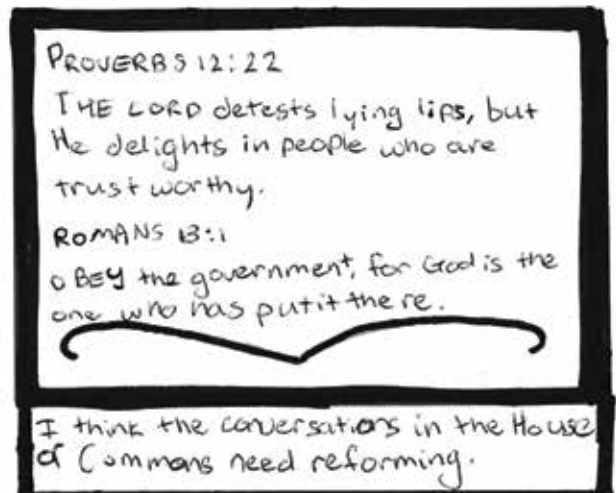 PROVERBS 12:22
THE LORD detests lying lips, but
He delights in people who are
trust worthy.
ROMANS 13:1
OBEY the government, for God is the
one who has put it there.
I think the conversations in the House
of Commons need reforming.